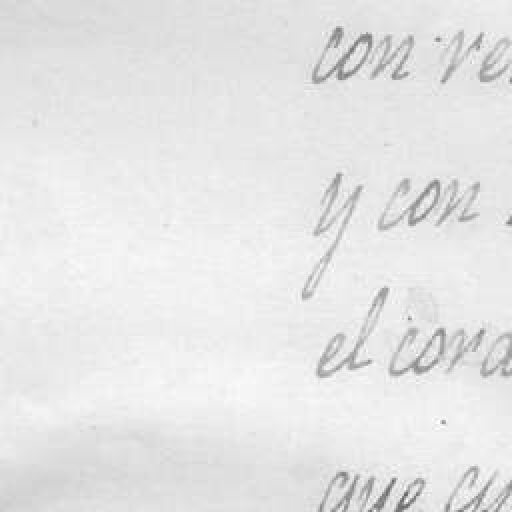 con re
y con
el cora
que qu